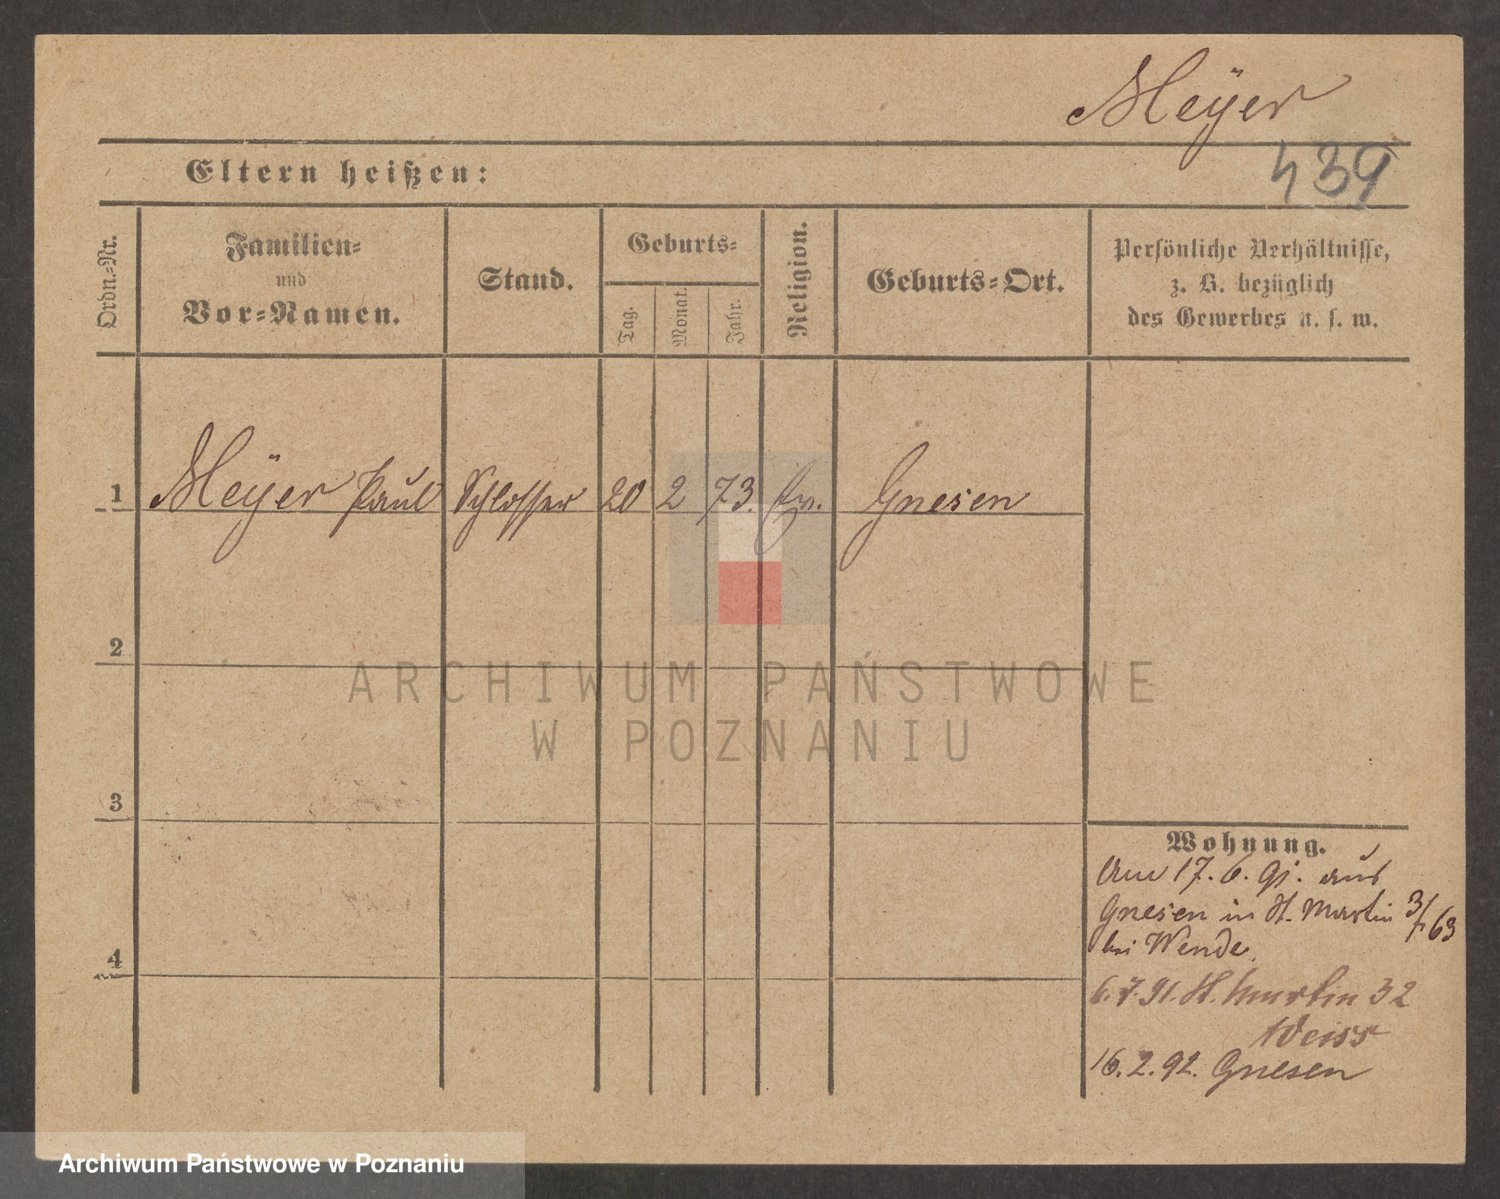 Meÿer
439
Eltern heißen:
Ordn.-Nr.
Familien-
und
Vor-Namen.
Stand.
Geburts-
Tag.
Monat.
Jahr.
Religion.
Geburts-Ort.
Persönliche Verhältnisse,
z. B. bezüglich
des Gewerbes u. s. w.
1 Meÿer Paul Schlosser 20 2 73. Gnesen
2
3
4
Wohnung.
Am 17. 6. 91. aus
Gnesen in St. Martin 63
bei Wende.
6.7.91. St. Martin 32
Weiss
16.2.92. Gnesen
ARCHIWUM PAŃSTWOWE
W POZNANIU
Archiwum Państwowe w Poznaniu